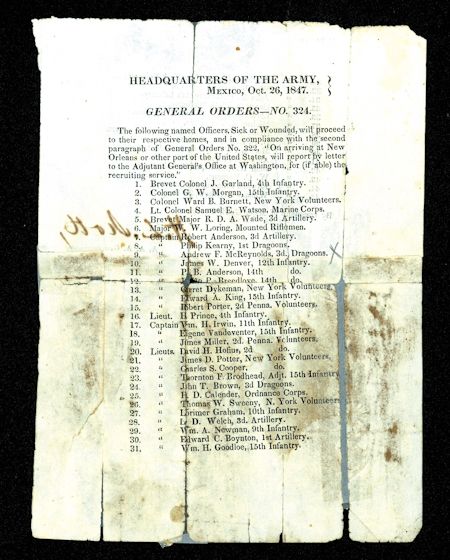 HEADQUARTERS OF THE ARMY,
Mexico, Oct. 26, 1847.
GENERAL ORDERS—NO. 324.
The following named Officers, Sick or Wounded, will proceed
to their respective homes, and in compliance with the second
paragraph of General Orders No. 322, "On arriving at New
Orleans or other port of the United States, will report by letter
to the Adjutant General's Office at Washington, for (if able) the
recruiting service."
1. Brevet Colonel J. Garland, 4th Infantry.
2. Colonel G. W. Morgan, 15th Infantry.
3. Colonel Ward B. Burnett, New York Volunteers.
4. Lt. Colonel Samuel E. Watson, Marine Corps.
5. Brevet Major R. D. A. Wade, 3d Artillery.
6. Major W. W. Loring, Mounted Riflemen.
7. Captain Robert Anderson, 3d Artillery.
8. " Philip Kearny, 1st Dragoons.
9. " Andrew F. McReynolds, 3d, Dragoons.
10. " James W. Denver, 12th Infantry.
11. " P. B. Anderson, 14th do.
12. " P. Breedlove, 14th do.
13. " Garet Dykeman, New York Volunteers.
14. " Edward A. King, 15th Infantry.
15. " Robert Porter, 2d Penna. Volunteers.
16. Lieut. H Prince, 4th Infantry.
17. Captain Wm. H. Irwin, 11th Infantry.
18. " Eugene Vandeventer, 15th Infantry.
19. " James Miller, 2d Penna. Volunteers.
20. Lieuts. David H. Hofius, 2d do.
21. " James D. Potter, New York Volunteers.
22. " Charles S. Cooper, do.
23. " Thornton F. Brodhead, Adjt. 15th Infantry
24. " John T. Brown, 3d Dragoons.
25. " H. D. Calender, Ordnance Corps.
26. " Thomas W. Sweeny, N. York Volunteers
27. " Lorimer Graham, 10th Infantry.
28. " L. D. Welch, 3d. Artillery.
29. " Wm. A. Newman, 9th Infantry.
30. " Edward C. Boynton, 1st Artillery.
31. " Wm. H. Goodloe, 15th Infantry.